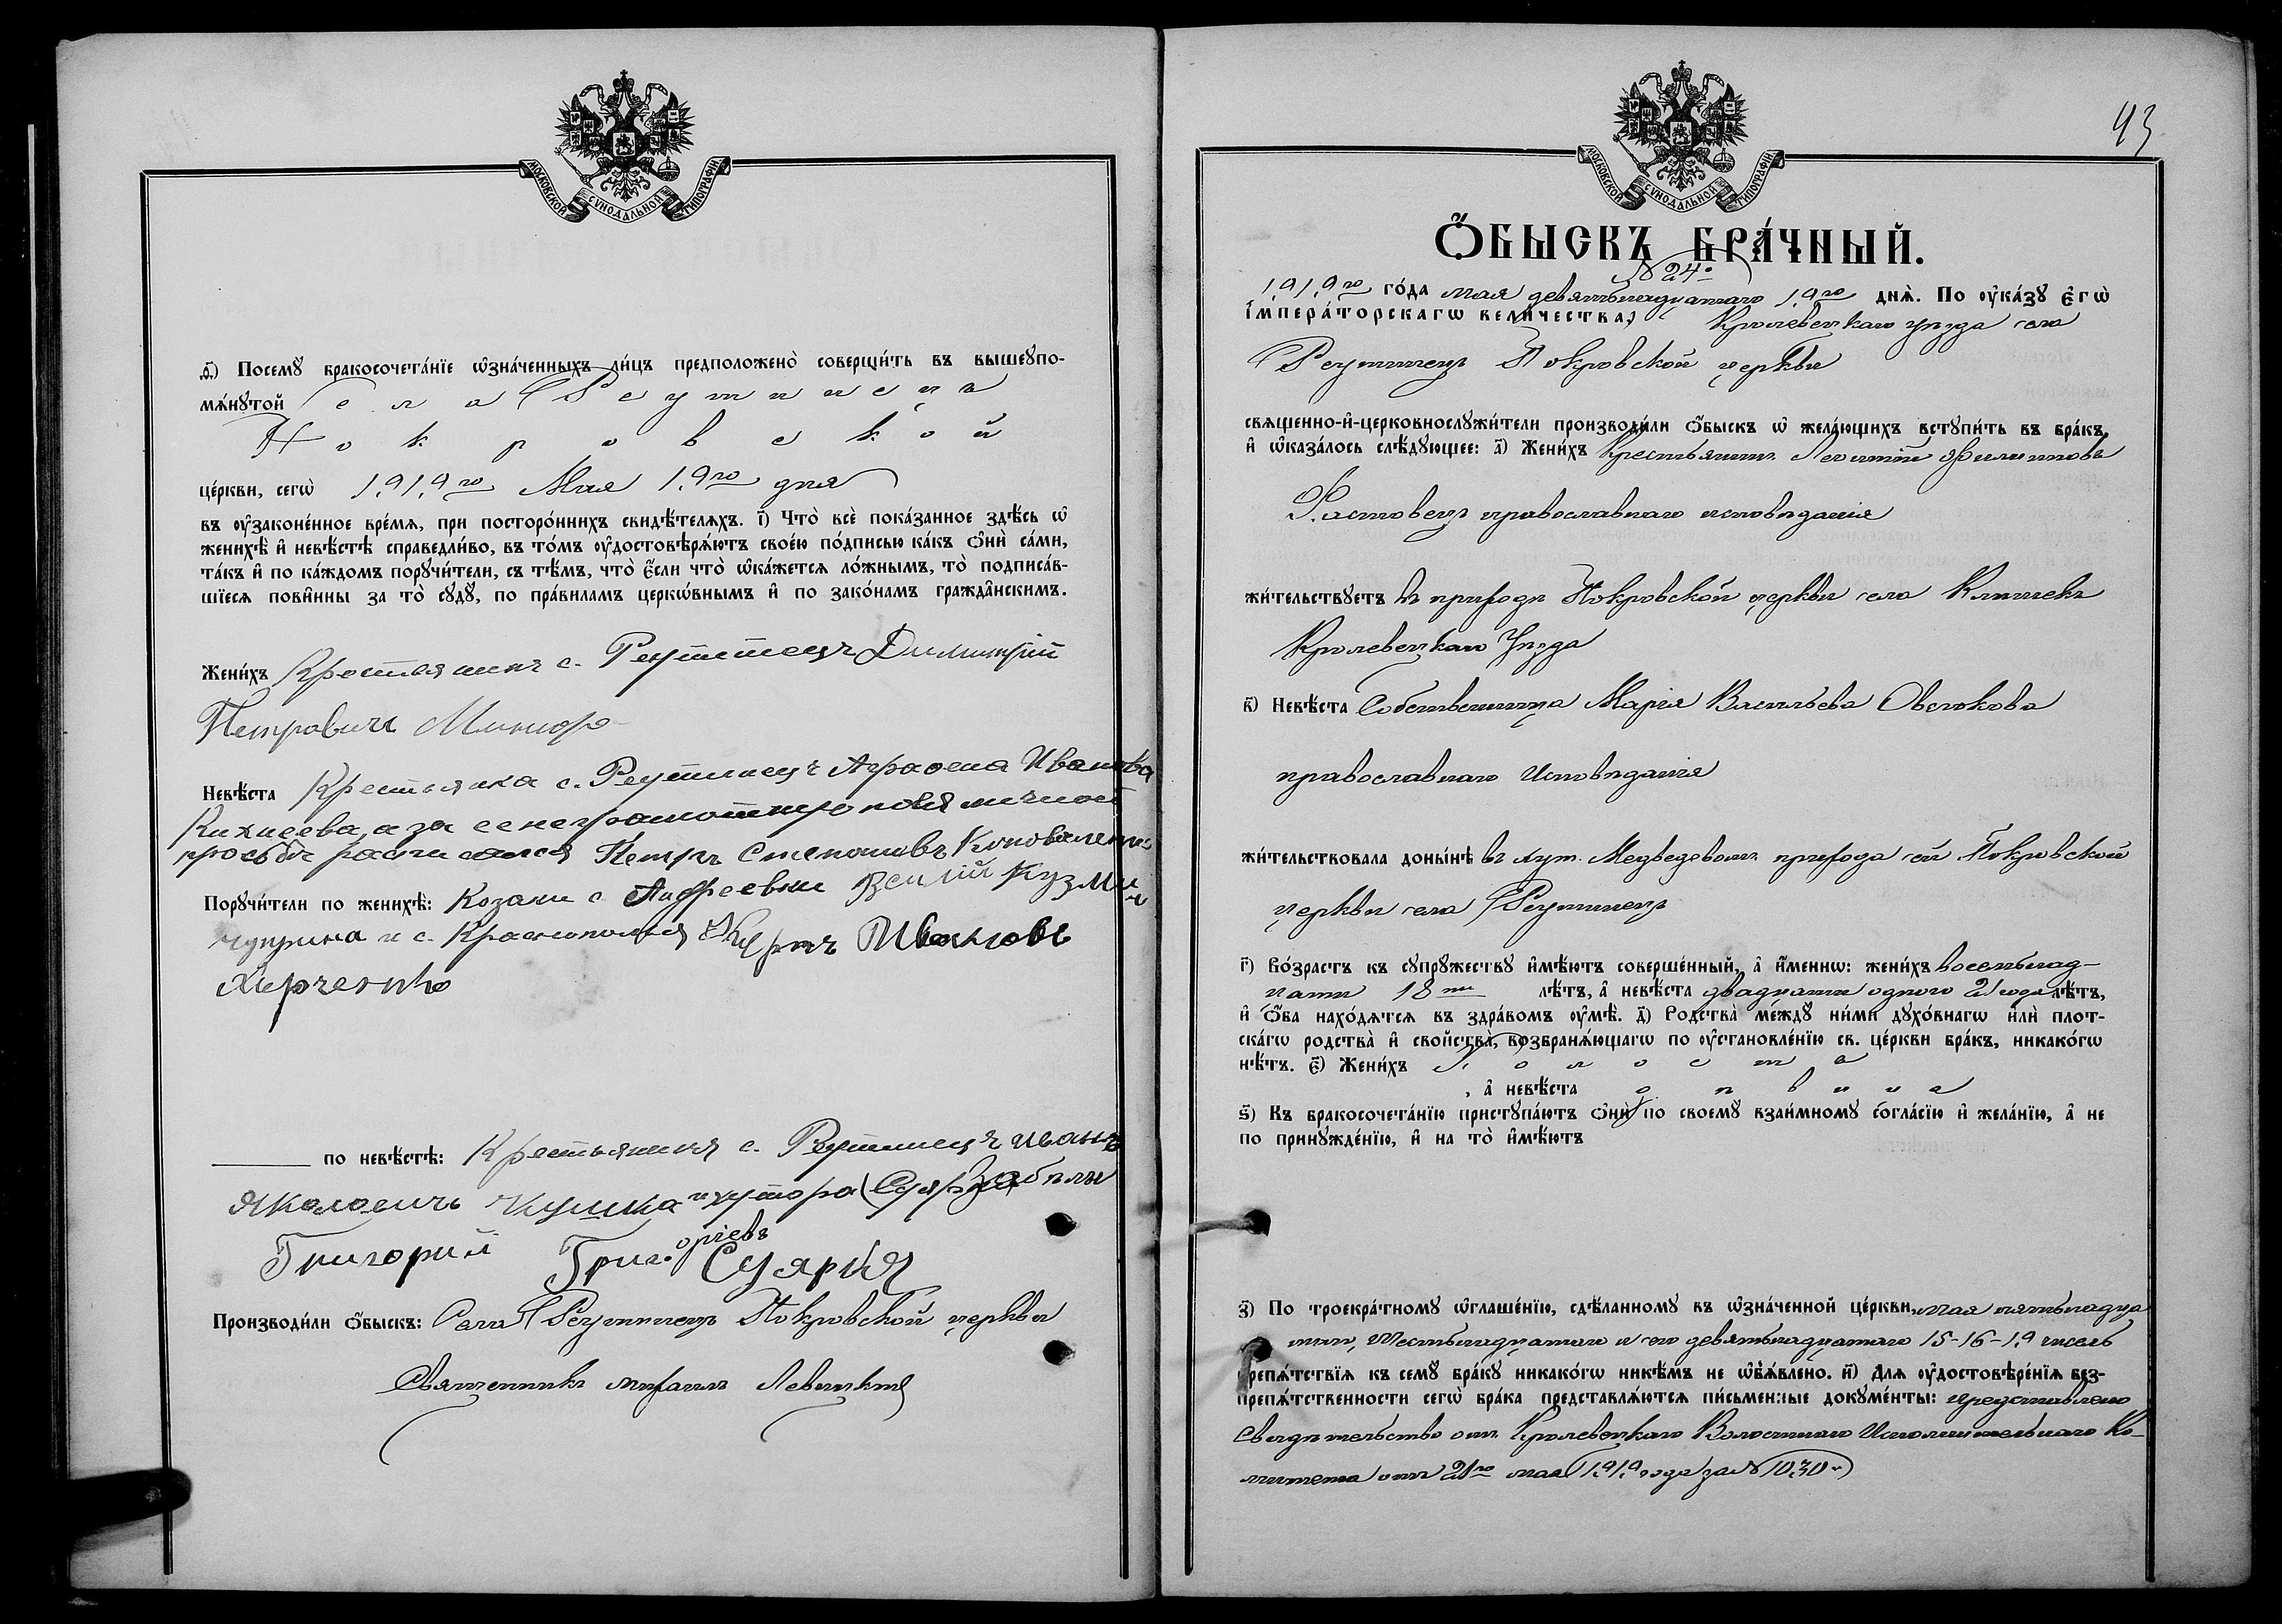 МОСКОВСКОЙ СѴНОДАЛЬНОЙ ТИПОГРАФІИ
д҃) Посемꙋ бракосочета́нїе ѡ҆зна́ченныхъ ли́цъ предположено̀ соверши́ть въ вышеꙋпо-
мѧ́нꙋтой села Реутинецъ
Покровской
це́ркви, сегѡ̀ 1919го Мая 19го дня
въ ᲂу҆законе́нное вре́мѧ, при посторо́ннихъ свидѣ́телѧхъ. і҃) Что̀ всѐ пока́занное здѣ́сь ѡ҆
женихѣ̀ и҆ невѣ́стѣ справедли́во, въ то́мъ ᲂу҆достовѣрѧ́ютъ свое́ю по́дписью ка́къ ѻ҆нѝ са́ми,
та́къ и҆ по ка́ждомъ порꙋчи́тели, съ тѣ́мъ, что̀ є҆́сли что̀ ѡ҆ка́жетсѧ ло́жнымъ, то̀ подписа́в-
шїесѧ пови́нны за то̀ сꙋдꙋ̀, по пра́виламъ церкѡ́внымъ и҆ по зако́намъ гражда̂нскимъ.
Жени́хъ Крестьянинъ с. Реутинецъ Димитрій
Петровичъ
Невѣ́ста Крестьянка с. Реутинецъ Иванова
а за ея неграмотную по ея личной
просьбѣ росписался Петръ Степановъ Коноваленко
Порꙋчи́тели по женихѣ̀: Козаки с. Андреевки Кузмич
Чуприна и с. Краснополья Ивановъ
по невѣ́стѣ: Крестьянинъ с. Реутинецъ Иванъ
и хутора
Григорій Григоріевъ
Производи́ли ѻ҆́быскъ: Села Реутинецъ Покровской церкви
Священникъ Михаилъ Левицкій
43
МОСКОВСКОЙ СѴНОДАЛЬНОЙ ТИПОГРАФІИ
Ѻ҆́БЫСКЪ БРА́ЧНЫЙ.
№ 24й
1919го го́да мая девятнадцатаго 19го днѧ̀. По ᲂу҆ка́зꙋ є҆гѡ̀
і҆мпера́торскагѡ вели́чества, Кролевецкаго уѣзда села
Реутинецъ Покровской церкви
свѧщенно-и҆-церковнослꙋжи́тели производи́ли ѻ҆́быскъ ѡ҆ жела́ющихъ встꙋпи́ть въ бра́къ,
и҆ ѡ҆каза́лось слѣ́дꙋющее: а҃) Жени́хъ Крестьянинъ Леонтій Филипповъ
православнаго исповѣданія
жи́тельствꙋетъ въ приходѣ Покровской церкви села Клишекъ
Кролевецкаго Уѣзда
в҃) Невѣ́ста Собственница Марія Васильева Овсюкова
православнаго Исповѣданія
жи́тельствовала доны́нѣ въ хут. Медведевомъ прихода сей Покровской
церкви села Реутинецъ
г҃) Во́зрастъ къ сꙋпрꙋ́жествꙋ и҆мѣ́ютъ соверше́нный, а҆ и҆́меннѡ: жени́хъ восемнад-
цати 18ти лѣ́тъ, а҆ невѣ́ста двадцати одного 21 года лѣ́тъ,
и҆ ѻ҆́ба нахо́дѧтсѧ въ здра́вомъ ᲂу҆мѣ̀. д҃) Родства̀ ме́ждꙋ ни́ми дꙋхо́внагѡ и҆лѝ плот-
ска́гѡ родства̀ и҆ свойства̀, возбранѧ́ющагѡ по ᲂу҆становле́нїю св. це́ркви бра́къ, никако́гѡ
нѣ́тъ. є҃) Жени́хъ холостъ
, а҆ невѣ́ста дѣвица
ѕ҃) Къ бракосочета́нїю пристꙋпа́ютъ ѻ҆нѝ по своемꙋ̀ взаи́мномꙋ согла́сїю и҆ жела́нїю, а҆ не
по принꙋжде́нїю, и҆ на то̀ и҆мѣ́ютъ
з҃) По троекра́тномꙋ ѡ҆глаше́нїю, сдѣ́ланномꙋ въ ѡ҆зна́ченной це́ркви, мая пятнадца
таго, шестнадцатаго и сего девятнадцатаго 15-16-19 чиселъ
препѧ́тствїѧ къ семꙋ̀ бра́кꙋ никако́гѡ никѣ́мъ не ѡ҆б̾ѧ́влено. и҃) Длѧ ᲂу҆достовѣре́нїѧ без-
препѧ́тственности сегѡ̀ бра́ка представлѧ́ютсѧ пи́сьменные докꙋме́нты: представлено
свидѣтельство отъ Кролевецкаго Волостнаго Исполнительнаго Ко-
митета отъ 21го мая 1919 года за № 1030м